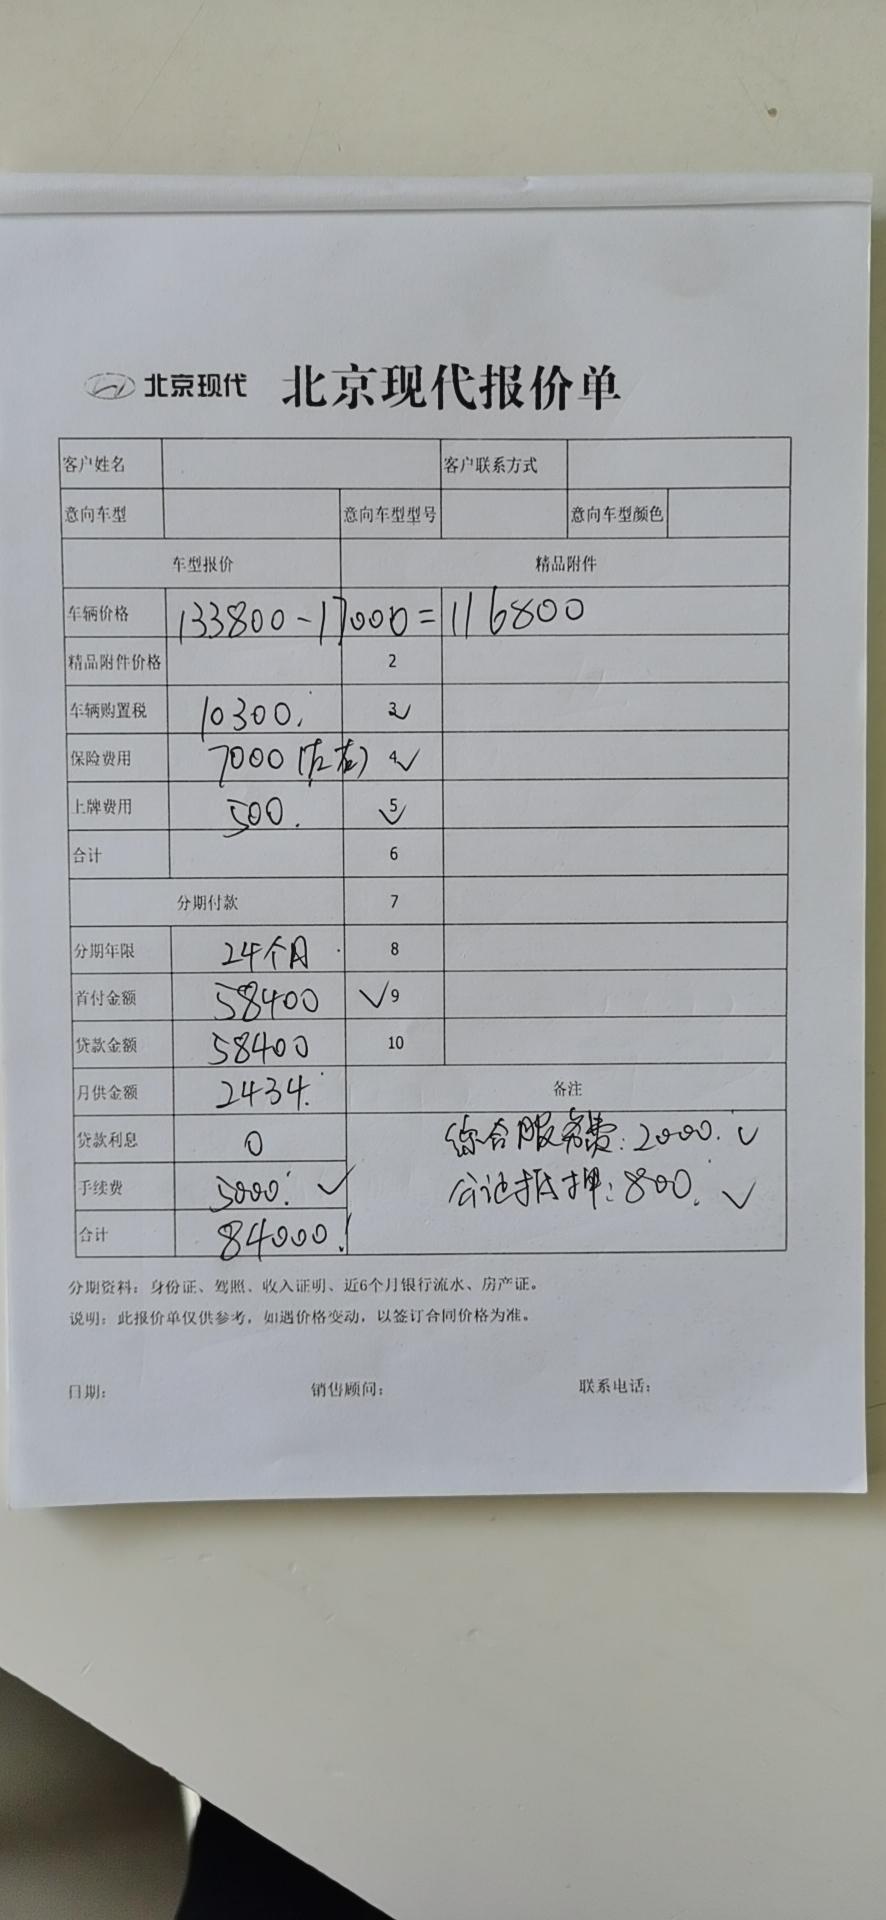 北京现代 北京现代报价单
客户姓名 客户联系方式
意向车型 意向车型型号 意向车型颜色
车型报价 精品附件
车辆价格 133800-17000=116800
精品附件价格 2
车辆购置税 10300. 3
保险费用 7000(左右) 4
上牌费用 500. 5
合计 6
分期付款 7
分期年限 24个月 8
首付金额 58400 9
贷款金额 58400 10
月供金额 2434. 备注
贷款利息 0 综合服务费:2000.
手续费 5000. 公证抵押:800.
合计 84000.
分期资料：身份证、驾照、收入证明、近6个月银行流水、房产证。
说明：此报价单仅供参考，如遇价格变动，以签订合同价格为准。
日期： 销售顾问： 联系电话：